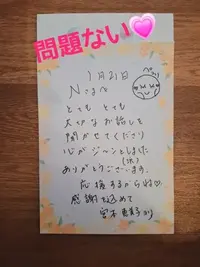 問題ない
1月21日
Nさまへ
とても とても
大切なお話しを
聞かせてくださり
心がジーンとしました
(休)
ありがとうございます。
応援するからね♡
感謝を込めて
宮本
より